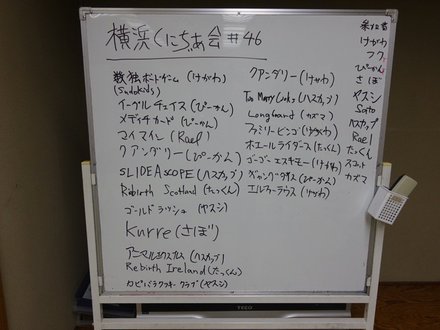 横浜くにぢぁ会 #46
数独ボードゲーム (けがわ)
(Sudokids)
イーグルチェイス (ぴーかん)
メディチカード (ぴーかん)
マイマイン (Rael)
クアンダリー (ぴーかん)
SLIDEASCOPE (ハスカップ)
Rebirth Scotland (たっくん)
ゴールドラッシュ (ヤスシ)
Kurre (さぼ)
アニマルホスピタル (ハスカップ)
Rebirth Ireland (たっくん)
カピバラクッキークラブ (ヤスシ)
クアンダリー (けがわ)
Too Many Cooks (ハスカップ)
Longboard (カズマ)
ファミリービンゴ (けがわ)
ホエールライダース (たっくん)
ゴーゴーエスキモー (けがわ)
(ぴーかん)
エルファーラウス (けがわ)
参加者
けがわ
フク
ぴーかん
さぼ
ヤスシ
Saito
ハスカップ
Rael
たっくん
スコット
カズマ